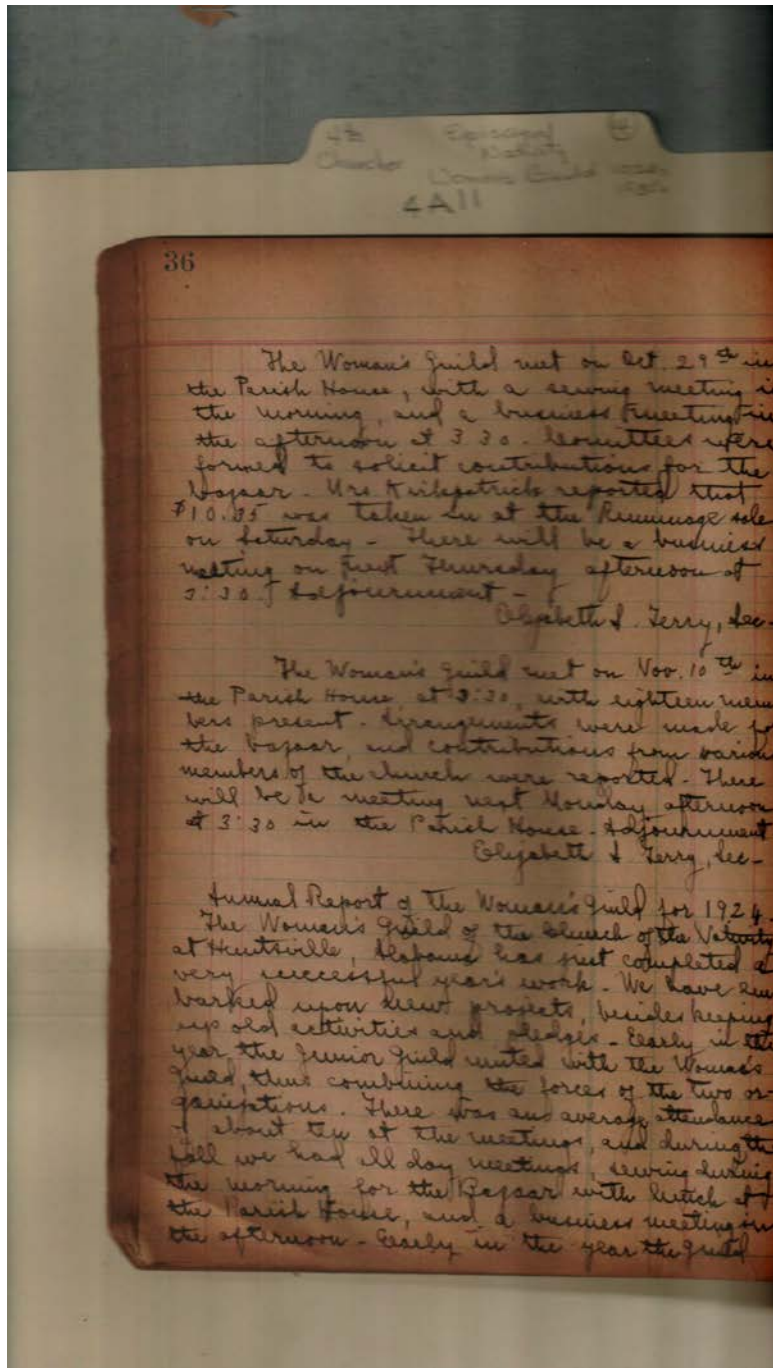 4th Episcopal (4)
Church Nativity
Womans Guild
4A11
36
The Woman's Guild met on Oct. 29th in
the Parish House, with a sewing meeting i
the morning, and a business meeting in
the afternoon at 3 30 - Committees were
formed to solicit contributions for the
bazaar - Mrs Kirkpatrick reported that
$10.35 was taken in at the Rummage sale
on Saturday - There will be a business
meeting on next Thursday afternoon at
3:30. Adjournment -
Elizabeth S. Terry, Sec-
The Woman's Guild met on Nov. 10th in
the Parish House, at 3:30, with eighteen mem
bers present - Arrangements were made fo
the bazaar, and contributions from various
members of the church were reported - There
will be a meeting next Monday afternoon
at 3:30 in the Parish House - Adjournment
Elizabeth S Terry, Sec-
Annual Report of the Woman's Guild for 1924.
The Woman's Guild of the Church of the Nativity
at Huntsville, Alabama has just completed a
very successful year's work - We have em
barked upon new projects, besides keeping
up old activities and pledges - Early in the
year the Junior Guild united with the Woman's
Guild, thus combining the forces of the two or-
ganizations. There was an average attendance
of about ten at the meetings, and during the
fall we had all day meetings, sewing during
the morning for the Bazaar with lunch at
the Parish House, and a business meeting in
the afternoon - Early in the year the Guild